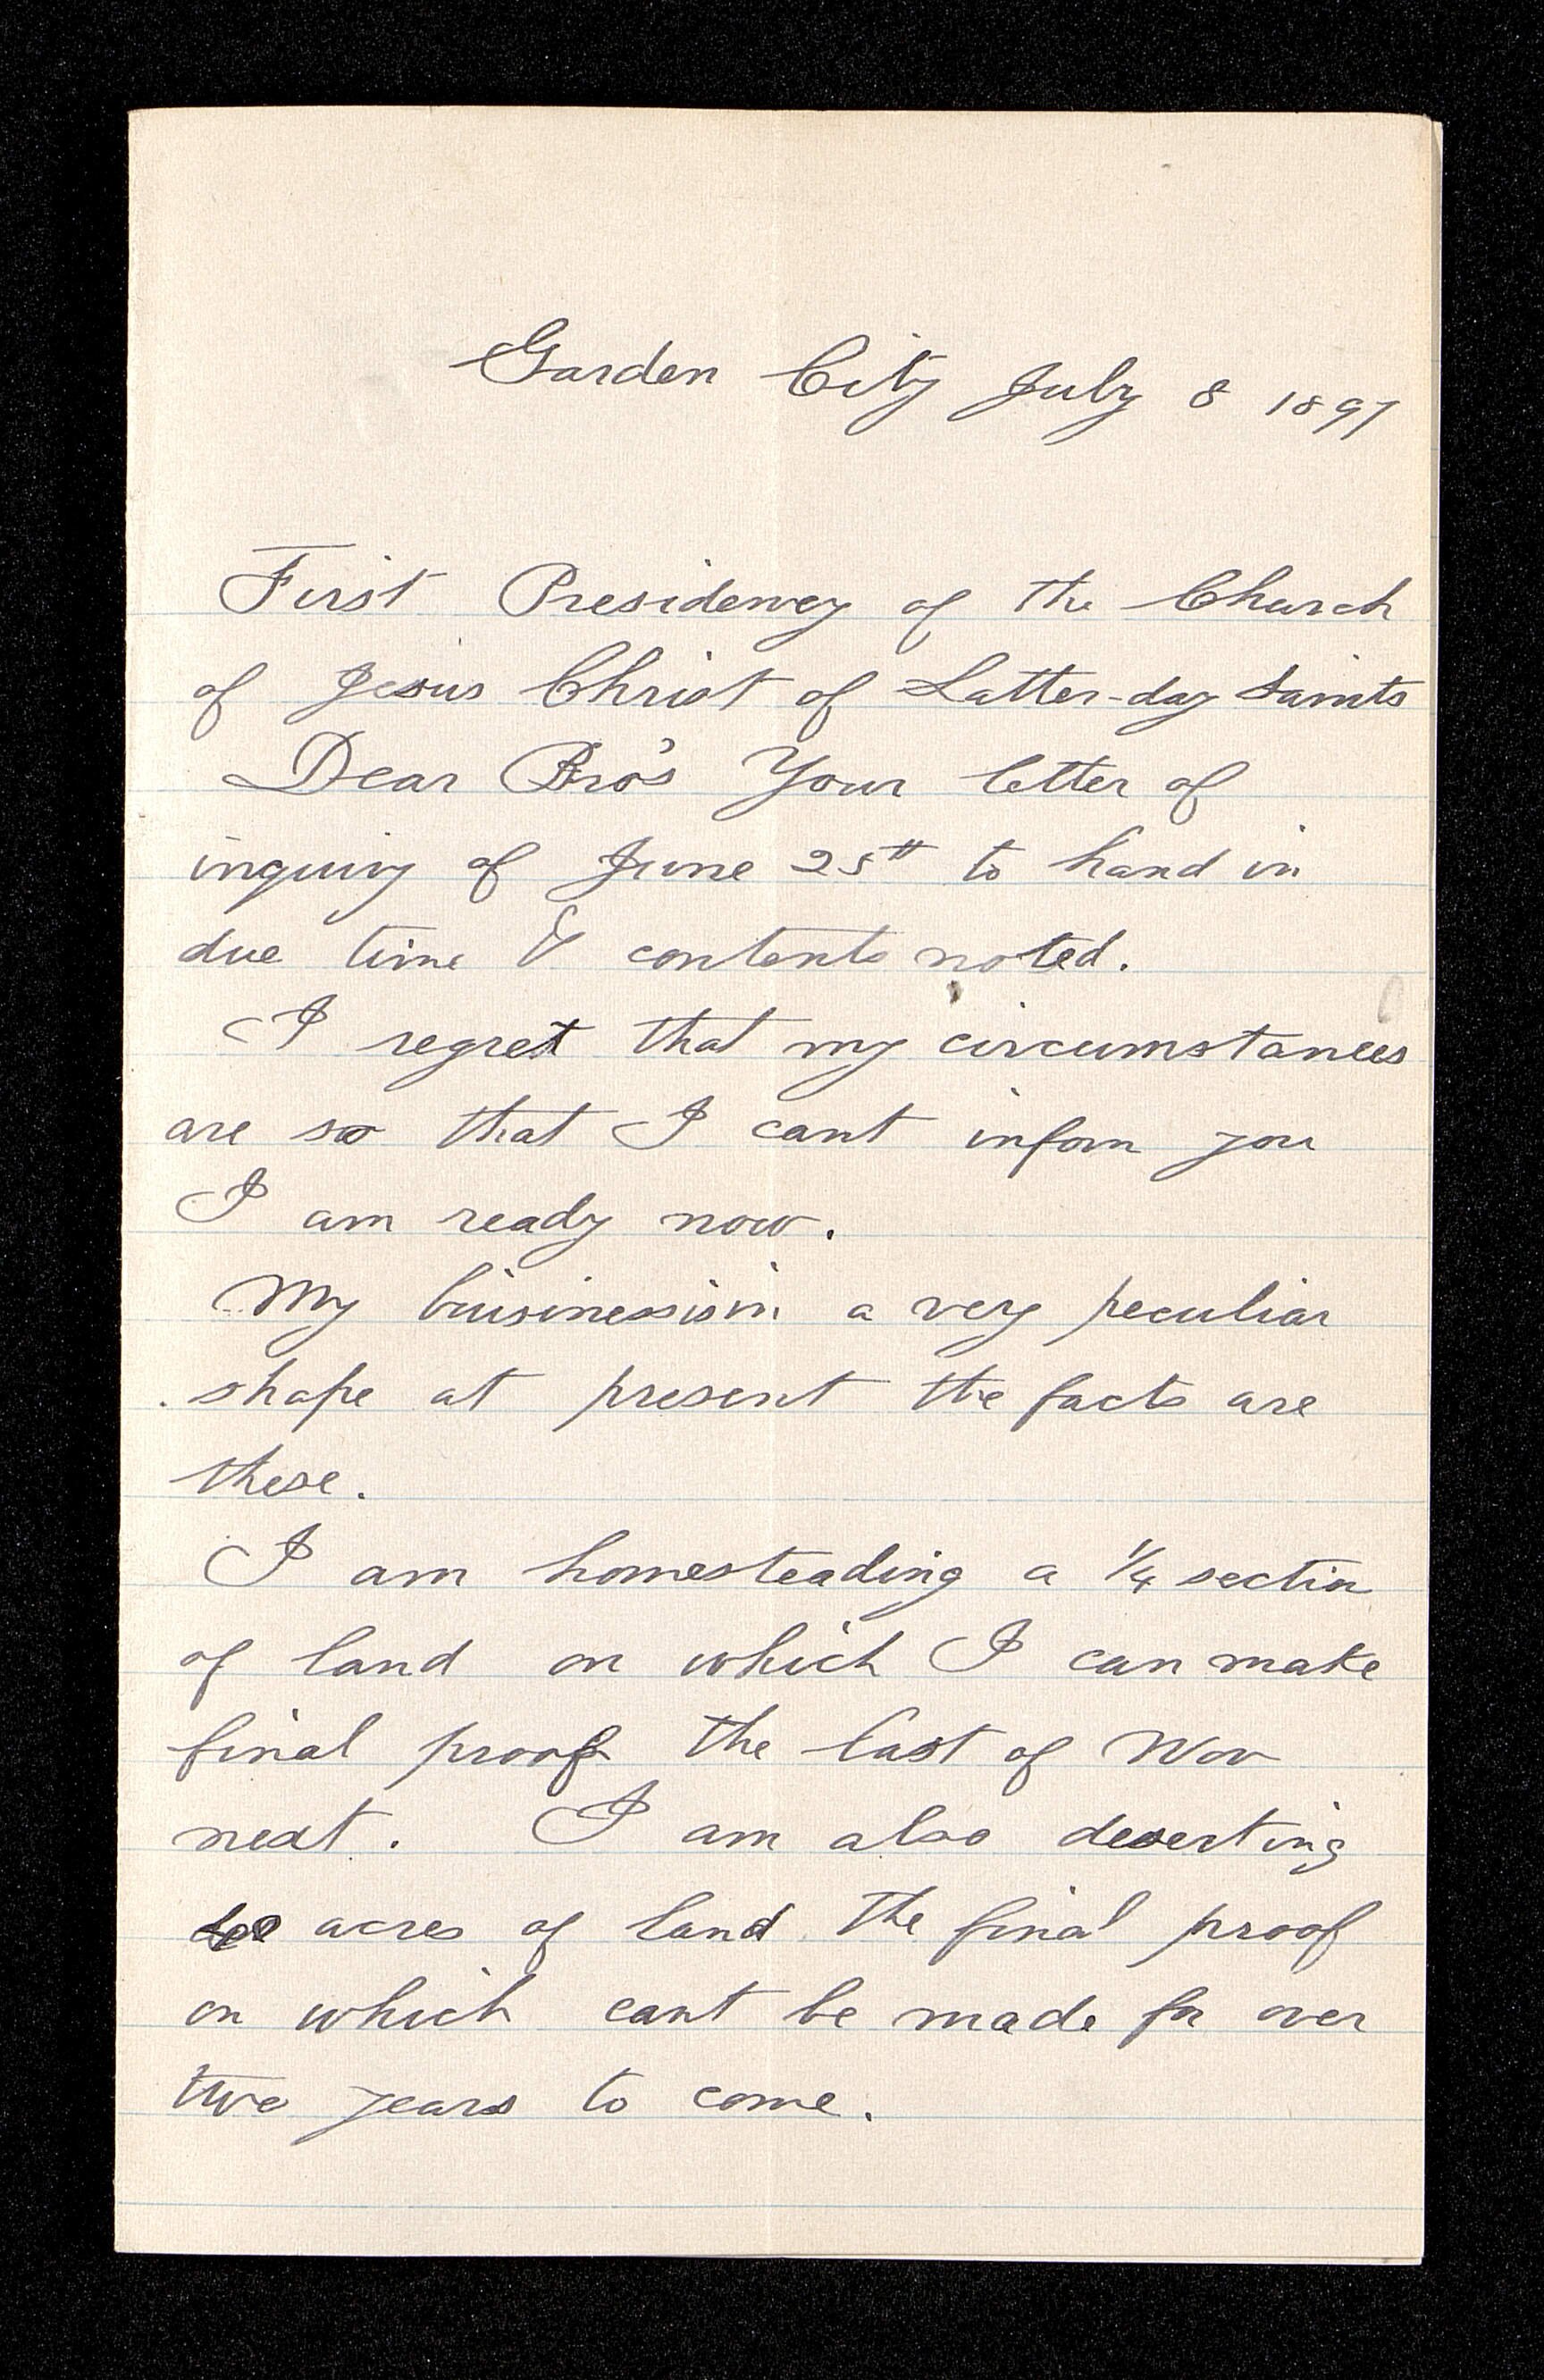 Garden City July 8 1897
First Presidency of the Church
of Jesus Christ of Latter-day Saints
Dear Bro's Your letter of
inquiry of June 25th to hand in
due time & contents noted.
I regret that my circumstances
are so that I cant inform you
I am ready now.
My buisiness is in a very peculiar
shape at present the facts are
these.
I am homesteading a 1/4 section
of land on which I can make
final proof the last of Nov
next. I am also deserting
acres of land the final proof
on which cant be made for over
two years to come.